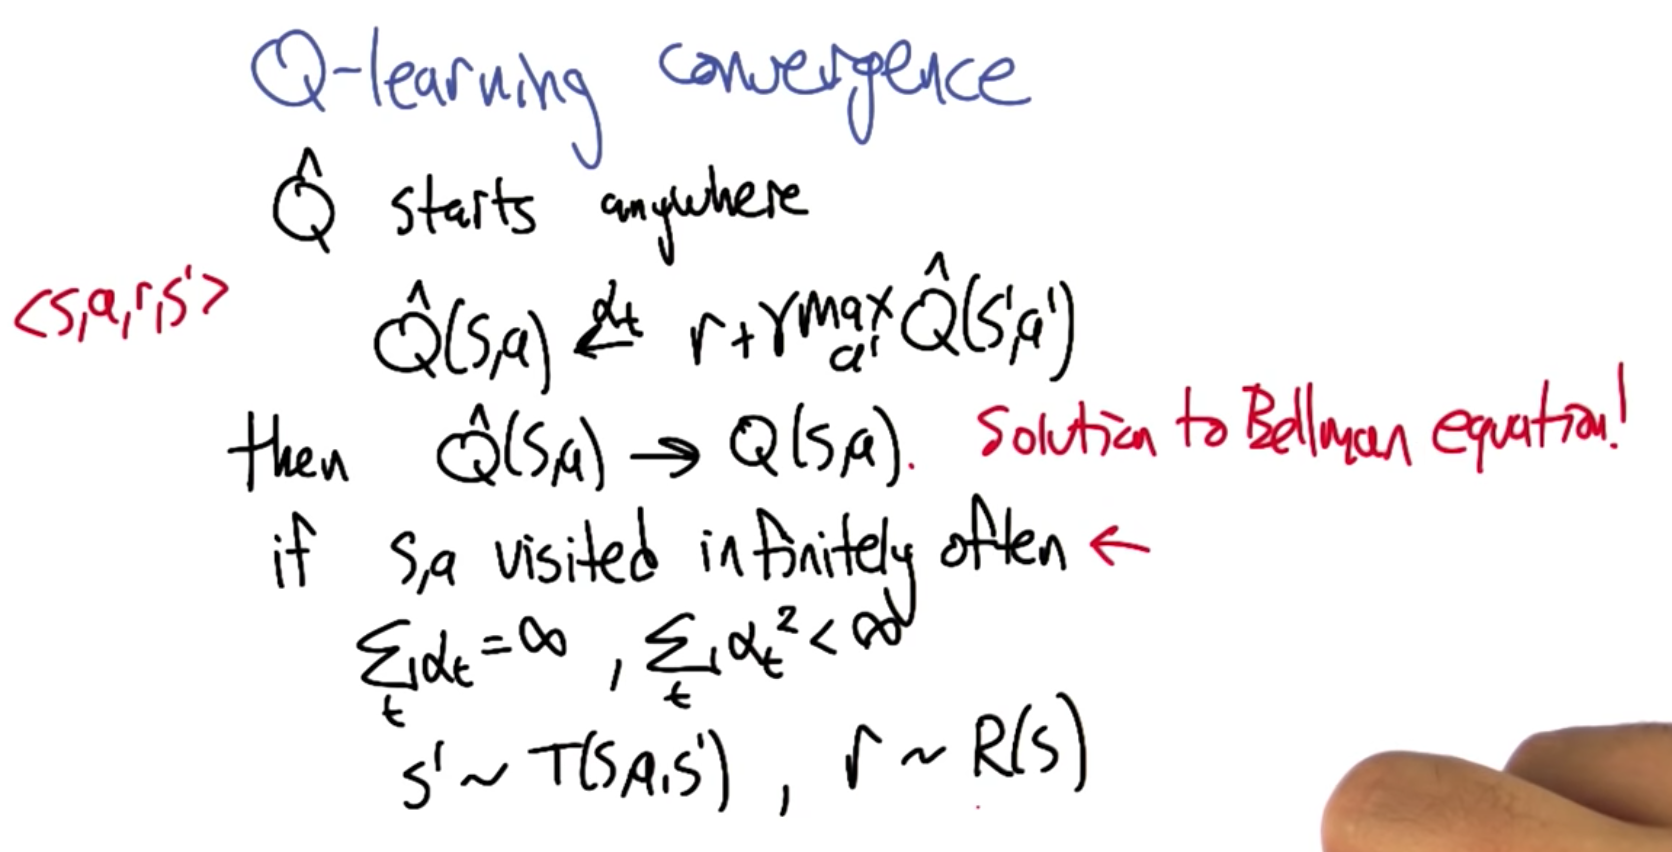 Q-learning convergence
Q̂ starts anywhere
<s,a,r,s'>
Q̂(s,a) ←αt r+γ max a' Q̂(s',a')
then Q̂(s,a) → Q(s,a). Solution to Bellman equation!
if s,a visited infinitely often ←
∑t αt = ∞ , ∑t αt² < ∞
s' ~ T(s,a,s') , r ~ R(s)